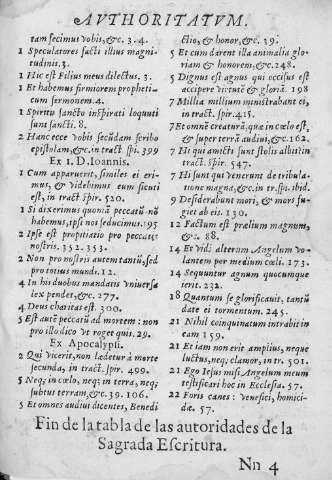 AVTHORITATVM.
tam fecimus vobis, &c. 3. 4.
1 Speculatores facti illius magnitudinis. 3.
1 Hic est Filius meus dilectus. 3.
1 Et habemus firmiorem propheticum sermonem. 4.
1 Spiritu sancto inspirati loquuti sunt sancti. 8.
2 Hanc ecce vobis secūdam scribo epistolam, &c. in tract spi. 399
Ex 1. D. Ioannis.
1 Cum apparuerit, similes ei erimus, & videbimus eum sicuti est, in tract spir. 520.
1 Si dixerimus quoniā peccatū nō habemus, ipsi nos seducimus. 195
2 Ipse est propitiatio pro peccatis nostris. 352. 353.
2 Non pro nostris autem tantū, sed pro totius mundi. 12.
4 In his duobus mandatis vniuersa lex pendet, &c. 277.
4 Deus charitas est. 300.
5 Est autē peccatū ad mortem: non pro illo dico vt roget quis. 29.
Ex Apocalypsi.
2 Qui vicerit, non lædetur à morte secunda, in tract. spir. 499.
5 Neq; in cœlo, neq; in terra, neq; subtus terram, &c. 39. 106.
5 Et omnes audiui dicentes, Benedi
ctio, & honor, &c. 39.
5 Et cum darent illa animalia gloriam & honorem, &c. 248.
5 Dignus est agnus qui occisus est accipere virtutē & gloriā. 198
7 Millia millium ministrabant ei, in tract. spir. 415.
7 Et omnē creaturā, quæ in cœlo est, & super terrā audiui, &c. 162.
7 Hi qui amicti sunt stolis albis in tract. spir. 547.
7 Hi sunt qui venerunt de tribulatione magna, &c. in tr. spi. ibid.
9 Desiderabunt mori, & mors fugiet ab eis. 130.
12 Factum est prælium magnum, &c. 88.
14 Et vidi alterum Angelum volantem per medium cœli. 173.
14 Sequuntur agnum quocumque ierit. 232.
18 Quantum se glorificauit, tantū date ei tormentum. 245.
21 Nihil coinquinatum intrabit in eam 159.
21 Et iam non erit amplius, neque luctus, neq; clamor, in tr. 501.
21 Ego Iesus misi Angelum meum testificari hoc in Ecclesia. 57.
22 Foris canes: venefici, homicidæ. 57.
Fin de la tabla de las autoridades de la
Sagrada Escritura.
Nn 4